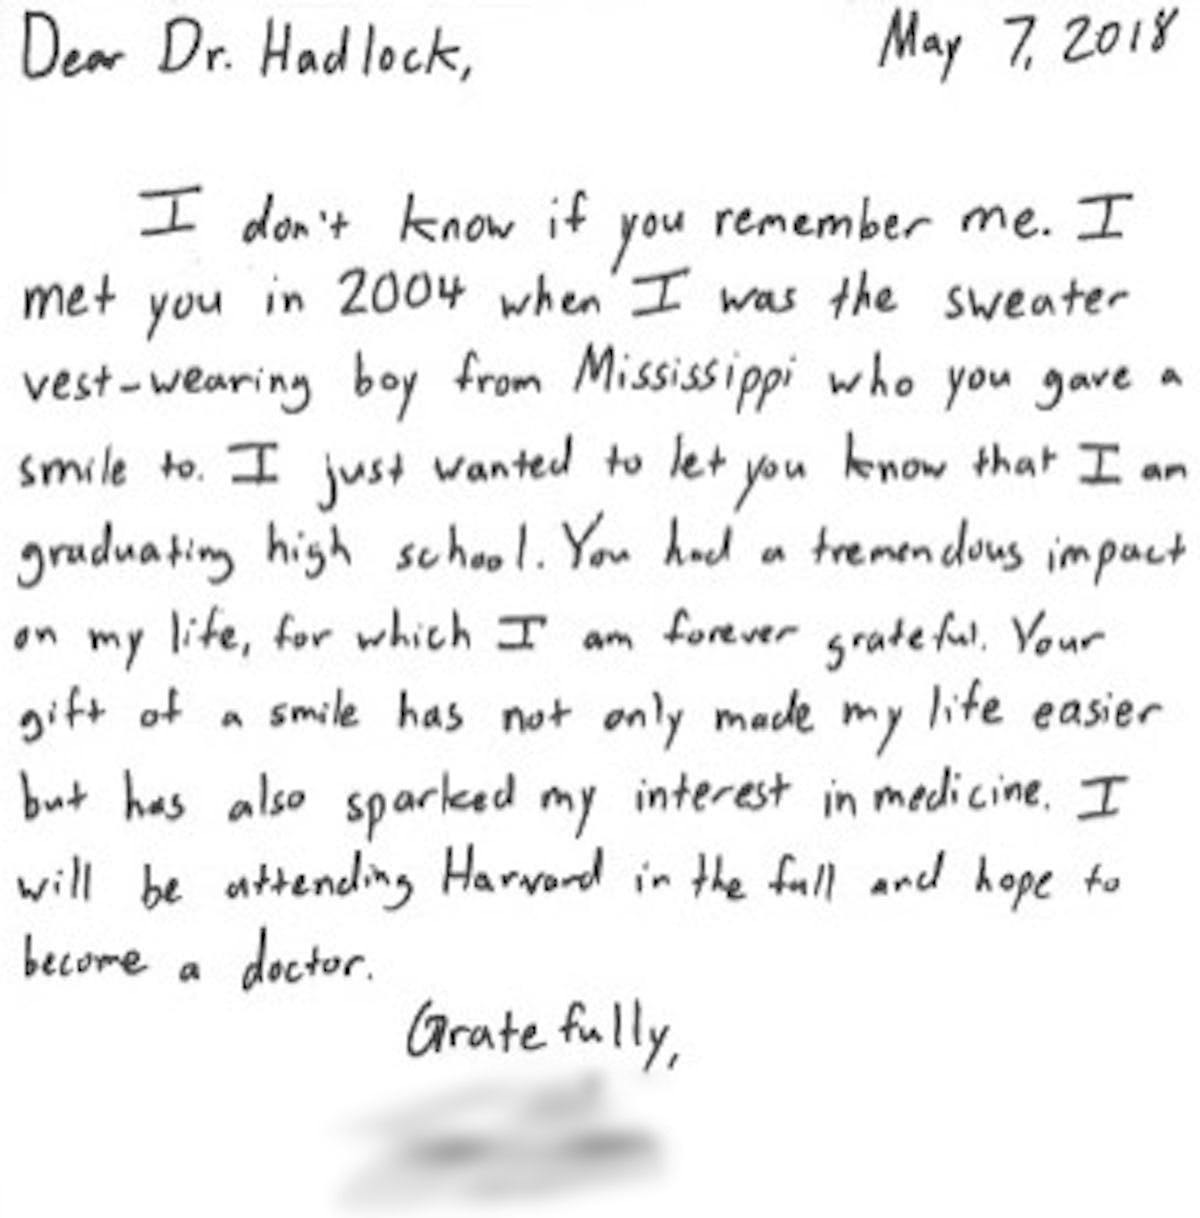 Dear Dr. Hadlock, May 7, 2018
I don't know if you remember me. I
met you in 2004 when I was the sweater
vest-wearing boy from Mississippi who you gave a
smile to. I just wanted to let you know that I am
graduating high school. You had a tremendous impact
on my life, for which I am forever grateful. Your
gift of a smile has not only made my life easier
but has also sparked my interest in medicine. I
will be attending Harvard in the fall and hope to
become a doctor.
Gratefully,